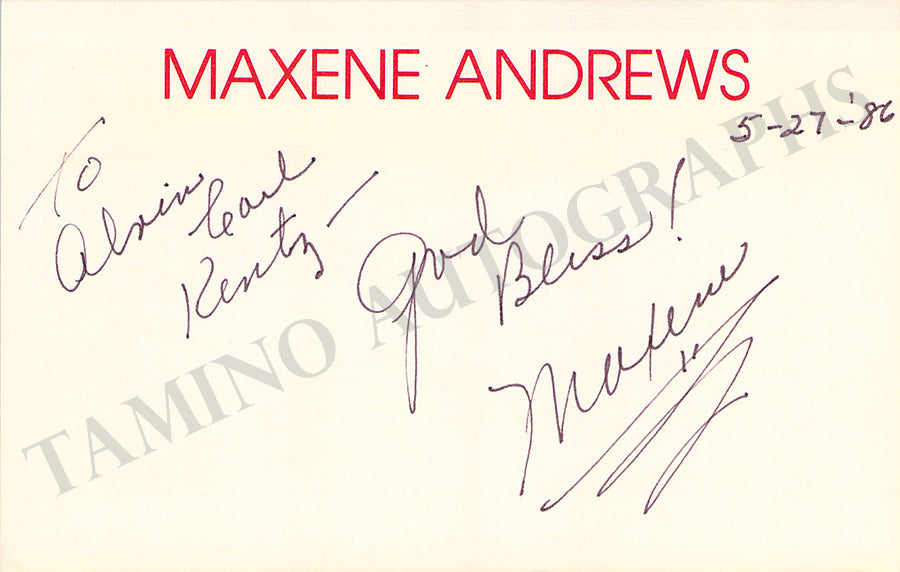 MAXENE ANDREWS
5-27-'86
To
Alvin Carl
Kentz —
God
Bless!
Maxene
TAMINO AUTOGRAPHS